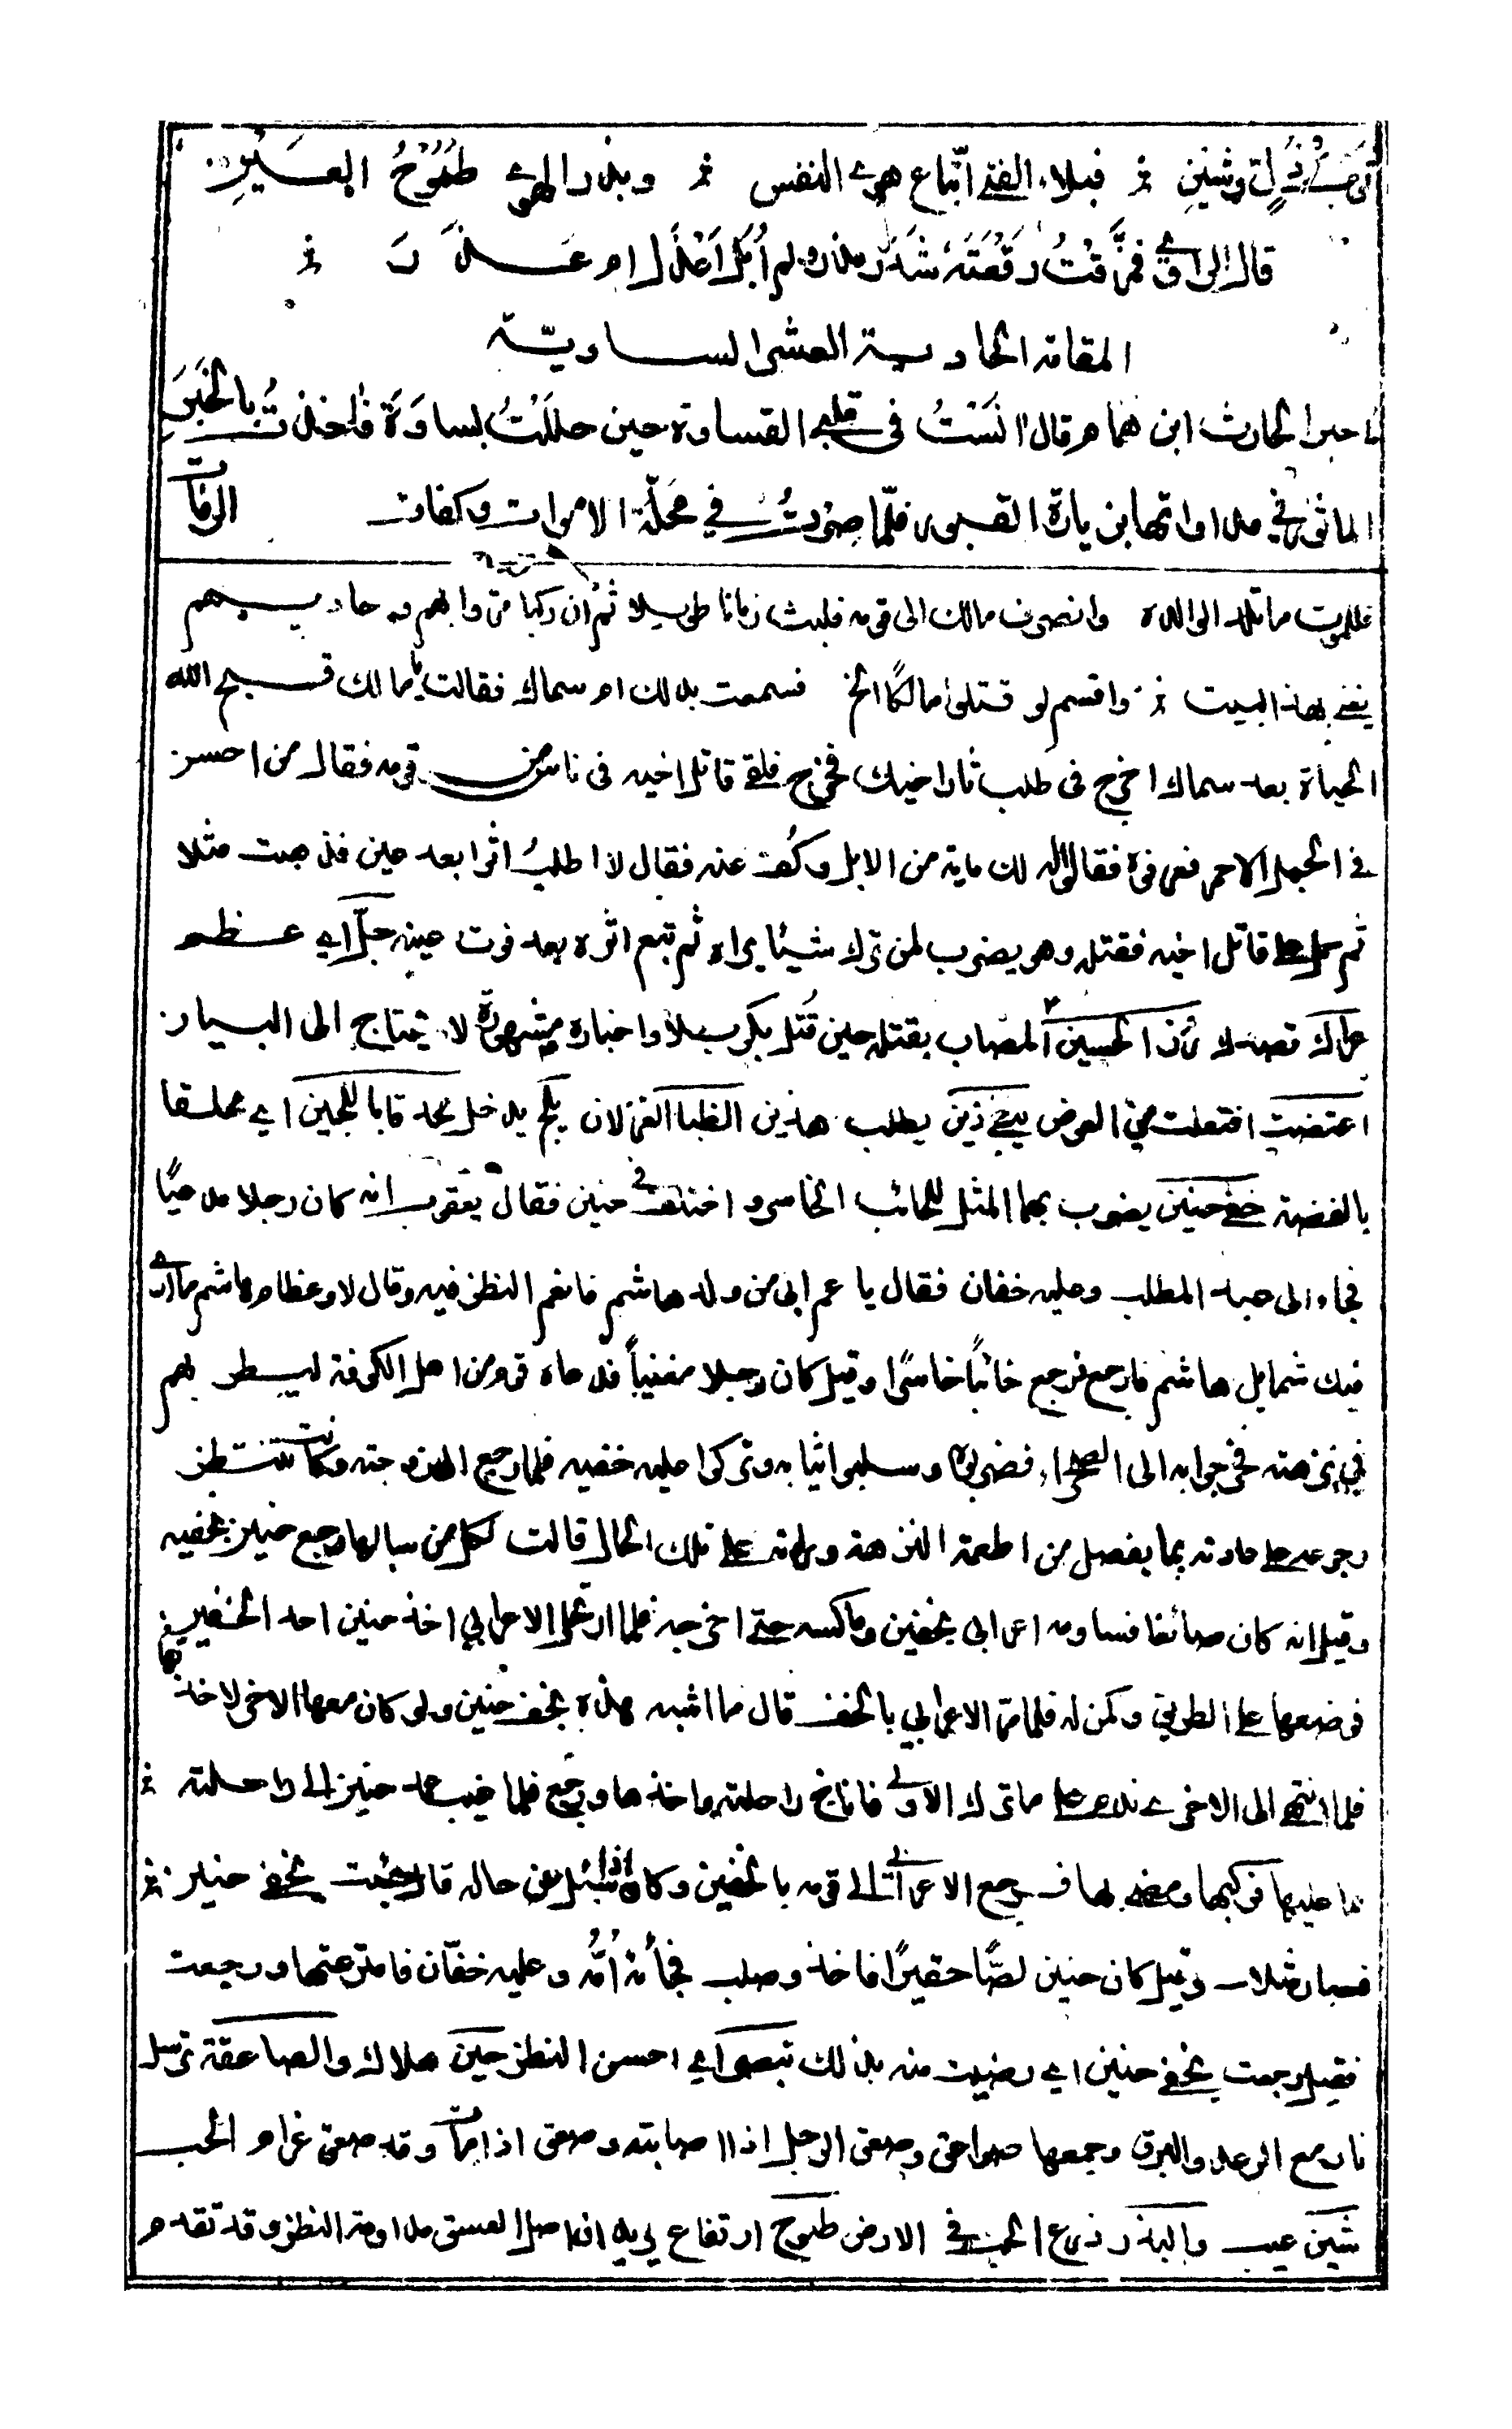 ثوب ذل وشين ؞ فبلاء الفتى اتباع هوى النفس ؞ وبذر الهوى طموح العين
قال الراوى فمزقت رقعته شذر مذر ولم ابل اعذل ام عذر ؞
المقامة الحادية العشر الساوية
احبر الحارث ابن همام قال انست فى قلبى القساوة حين حللت بساوة فاخذت بالخبر
الماثور في مداواتها بزيارة القبور فلما صرت في محلة الاموات وكفات الرفات
فللموت ما تلد الوالدة وانصرف مالك الى قومه فلبث زمانا طويلا ثم ان ركبا مروا بهم وحاديهم
يغنى بهذا البيت ؞ واقسم لو قتلوا مالكًا الخ فسمعت بذلك ام سماك فقالت يا مالك قبح الله
الحياة بعد سماك اخرج فى طلب ثار اخيك فخرج فلقى قاتل اخيه فى ناس من قومه فقال من احسن
في الجمل الاحمر فعرفوه فقالوا له لك ماية من الابل وكف عنه فقال لا اطلب اثرا بعد عين فذهبت مثلا
ثم حمل على قاتل اخيه فقتله وهو يضرب لمن ترك شيئا يراه ثم تبع اثره بعد فوت عينه جل اى عظم
عراك قصد لا رزء الحسين المصاب بقتله حين قتل بكربلا واخباره مشهورة لا تحتاج الى البيان
اعتضت افتعلت من العوض يبغي ذين يطلب هذين الظبا الغزلان يلج يدخل تجد قابا للجين اى مملقا
بالفضة خفي حنين يضرب بهما المثل للخائب الخاسر واختلف في حنين فقال يعقوب انه كان رجلا مدعيًا
فجاء الى عبد المطلب وعليه خفان فقال يا عم انى من ولد هاشم فانعم النظر فيه وقال لا وعظام هاشم ما ارى
فيك شمايل هاشم فارجع فرجع خائبًا خاسرًا وقيل كان رجلا مغنيًا فدعاه قوم من اهل الكوفة ليطربهم
في نزهته فخرجوا به الى الصحراء فضربوه وسلبوا ثيابه وتركوا عليه خفيه فلما رجع الى زوجته وكانت تنتظر
رجوعه على عادته بما يفضل من اطعمة النزهة وراته على تلك الحال قالت لكل من سالها رجع حنين بخفيه
وقيل انه كان صائغا فساومه اعرابى بخفين وماكسه حتى اخرجه فلما ارتحل الاعرابي اخذ حنين احد الخفين
فوضعها على الطريق وكمن له فلما مر الاعرابي بالخف قال ما اشبه هذه بخف حنين ولو كان معها الاخرى لاخذتها
فلما انتهى الى الاخرى ندم على ما ترك الاولى فاناخ راحلته واخذها ورجع فلما غيب عمد حنين الى راحلته ؞
بما عليها فركبها ومضى بها فرجع الاعرابى الى قومه بالخفين وكان اذا سئل عن حاله قال جئت بخفى حنين ؞
فصار مثلا وقيل كان حنين لصًا حقيرًا فاخذ وصلب فجاءته امه وعليه خفان فانتزعتهما ورجعت
فقيل رجعت بخفى حنين اى رضيت منه بذلك تبصر اي احسن النظر حين هلاك والصاعقة ترسل
نار مع الرعد والبرق وجمعها صواعق وصعق الرجل اذا اصابته وصعق اذا مات وقد صعق غرام الحب
شين عيب والبذر زرع الحب في الارض طموح ارتفاع يريد ان اصل العشق مداومة النظر وقد تقدم